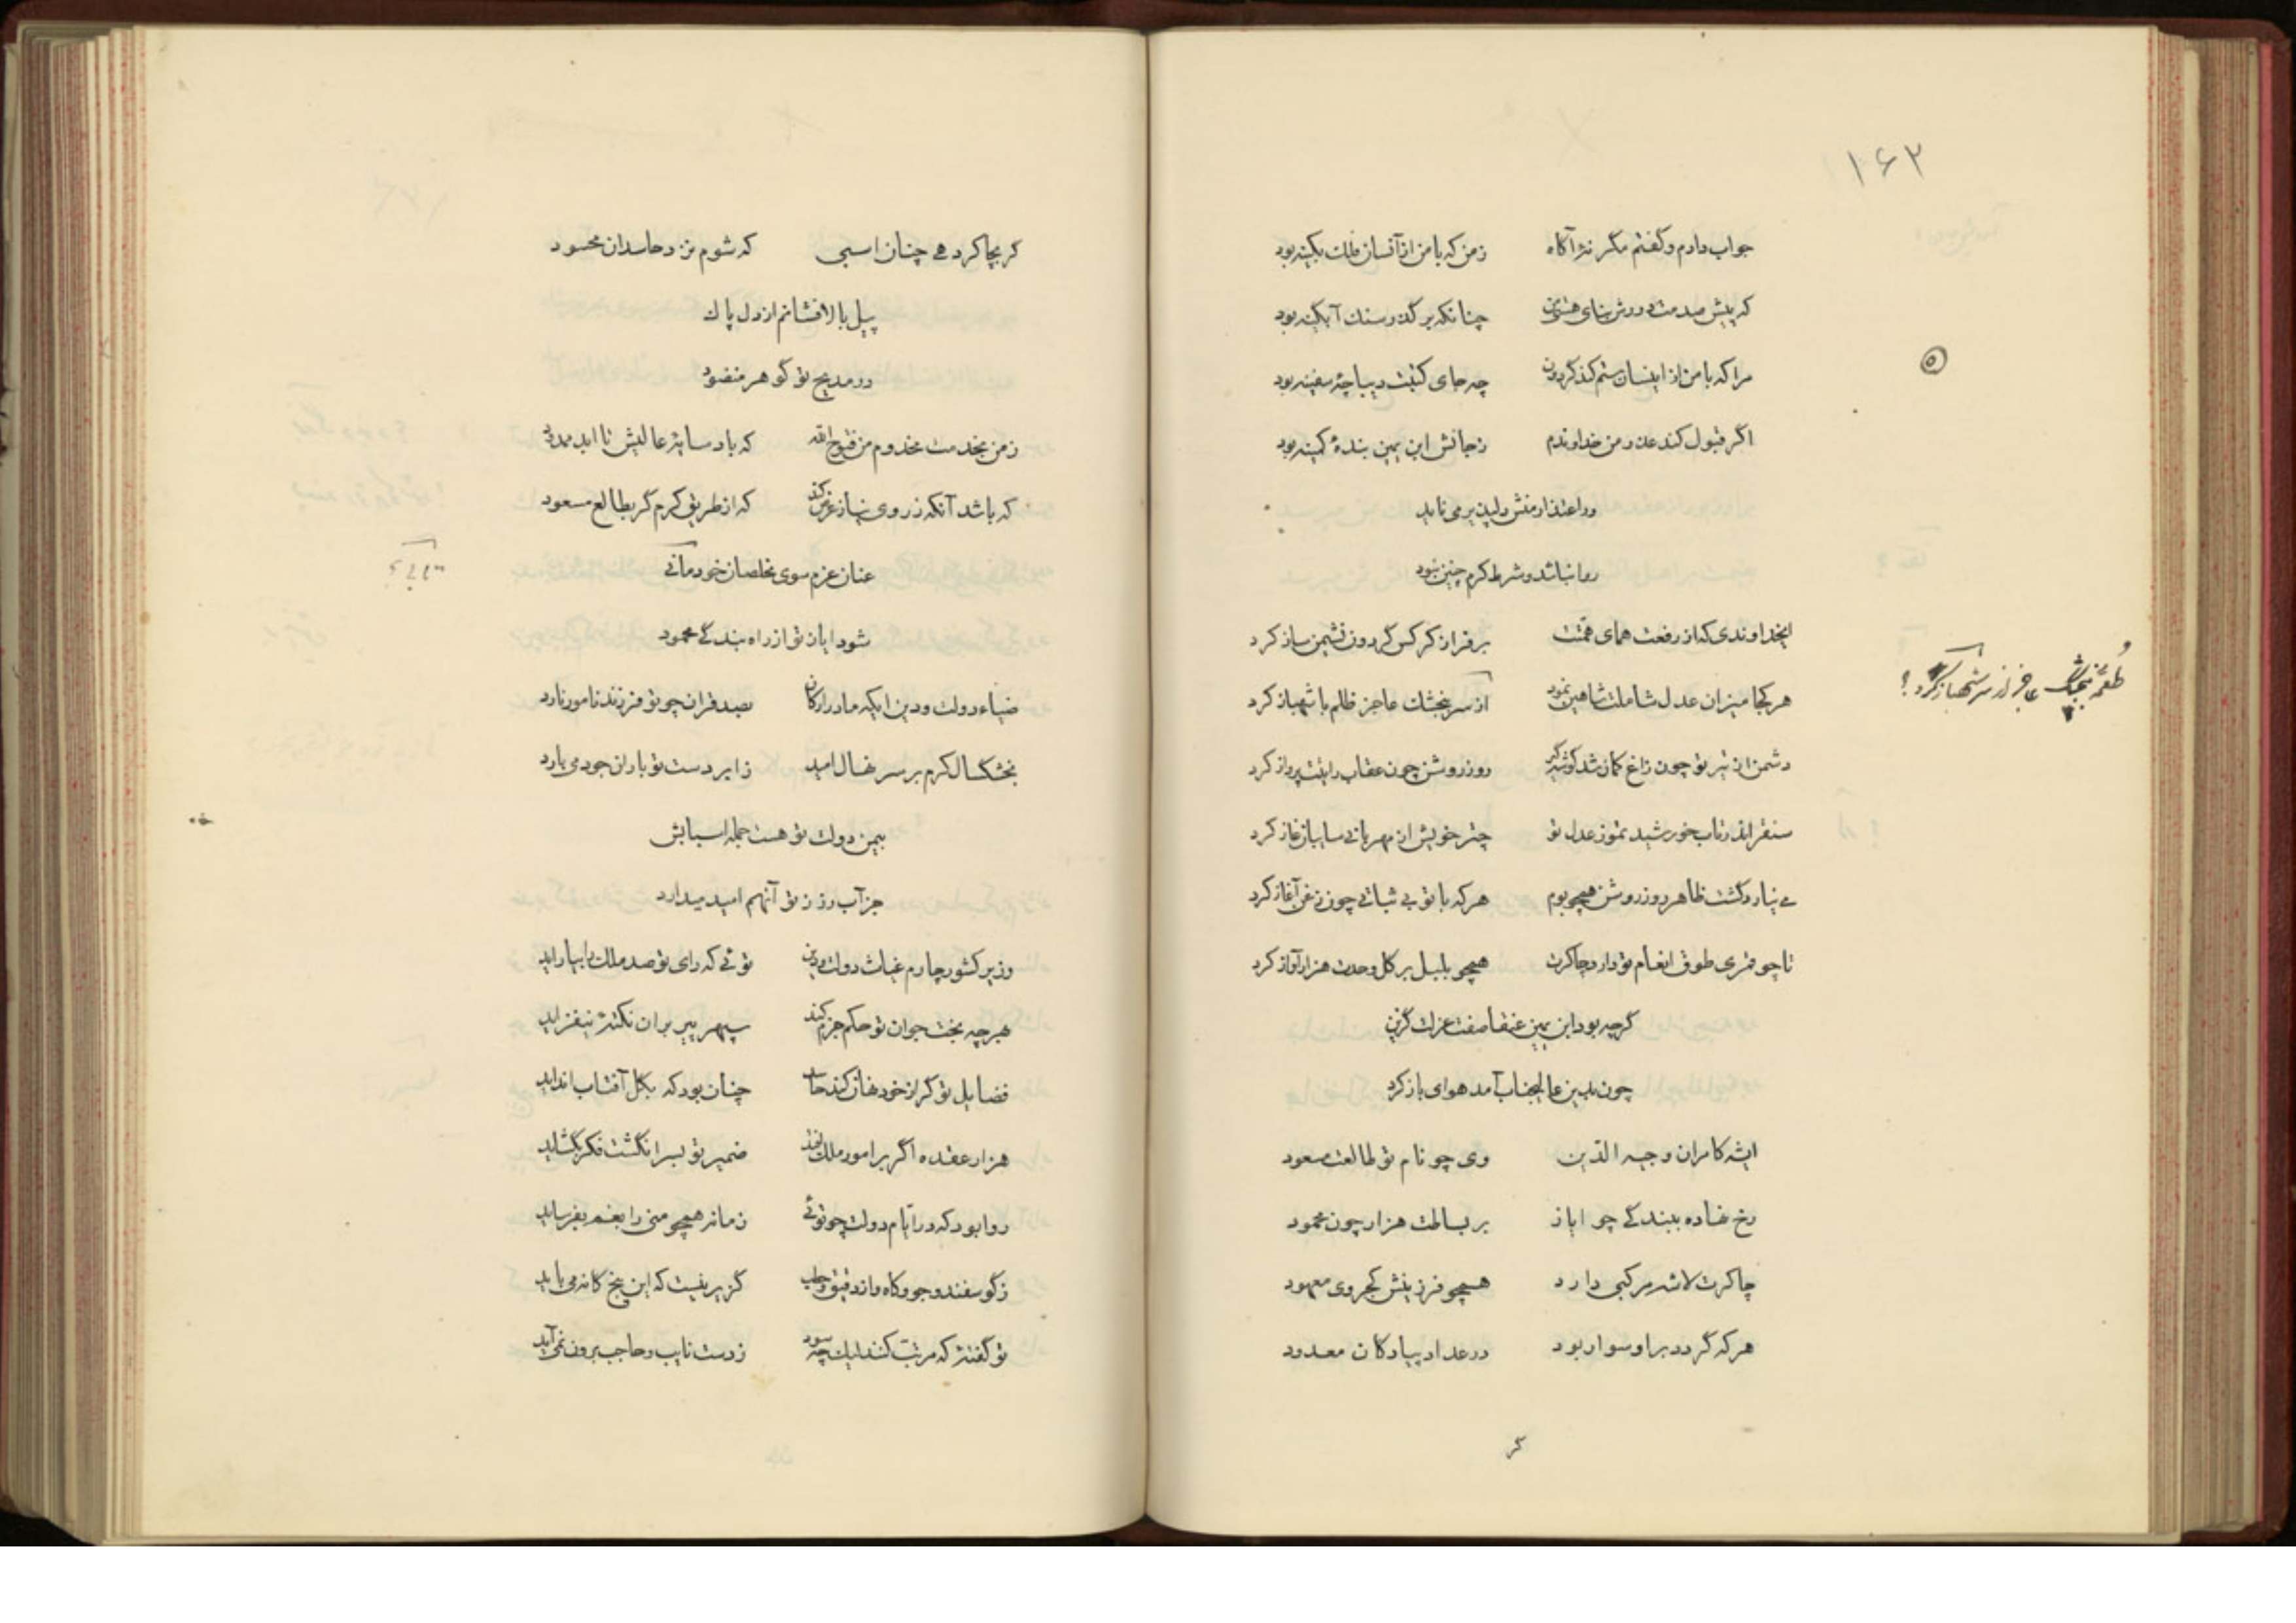 ۱۶۲
جواب دادم و گفتم مگر نه آگاه زمن که با من از آنسان فلک بکینه بود
که پیش صدمت دورش بنای هستی من چنانکه بر گذر سنک آبگینه بود
مرا که با من از اینسان ستم کند گردون چه جای کنیت دیباچه سفینه بود
اگر قبول کند عذر من خداوندم زجانش ابن یمین بنده کمینه بود
ور اعتذار منش دلپذیر می ناید
روا نباشد و شرط کرم چنین نبود
ایخداوندی که از رفعت همای همتت بر فراز کرکس گردون نشیمن ساز کرد
هر کجا میزان عدل شاملت شاهین نمود از سر بنجشک عاجز ظالم باشهباز کرد
طُعمه بنجشک عاجز از سر شهباز کرد؟
دشمن از تیر تو چون زاغ کمان شد گوشه گیر روز روشن چون عقاب رایتت پرواز کرد
سنقر اندر تاب خورشید تموز عدل تو چتر خویش از مهربانی سایبان غاز کرد
می نیارد گشت ظاهر روز روشن همچو بوم هر که با تو بی ثباتی چون زغن آغاز کرد
تا چو قمری طوق انعام تو دارد چاکرت همچو بلبل بر گل وحدت هزار آواز کرد
گرچه بود ابن یمین عنقا صفت عزلت گزین
چون بدین عالیجناب آمد هوای باز کرد
ایشه کامران وجیه الدین وی چو نام تو طالعت مسعود
رخ نهاده ببندگی چو ایاز بر بساطت هزار چون محمود
چاکرت لاشه مرکبی دارد همچو فرزینش کجروی معهود
هر که گردد بر او سوار بود در عداد پیادگان معدود
گر
گر بجا کرد هی چنان اسبی که شوم نزد حاسدان محسود
پیل بالا فشانم از دل پاک
در مدیح تو گوهر منضود
زمن بخدمت مخدوم من فتوح الله که باد سایه عالیش تا ابد ممدود
که باشد آنکه ز روی نیاز عرض کند که از طریق کرم گر بطالع مسعود
عنان عزم سوی مخلصان خود مانی
شود ایاز تو از راه بندگی محمود
ضیاء دولت و دین ایکه مادر ارکان بصد قران چو تو فرزند نامور نارد
بخشکسال کرم بر سر نهال امید ز ابر دست تو باران جود می بارد
بیمن دولت تو هست جمله اسبابش
جز آب رز ز تو آنهم امید میدارد
وزیر کشور چارم غیاث دولت و دین توئی که رای تو صد ملک را بیاراید
هر چه بخت جوان تو حکم جزم کند سپهر پیر بر آن نکته نیفزاید
فضایل تو گر از خود نهان کند حاسد چنان بود که بگل آفتاب انداید
هزار عقده اگر بر امور ملک افتد ضمیر تو بسر انگشت فکر بگشاید
روا بود که در ایام دولت چو توئی زمانه همچو منی را بغم بفرساید
ز گوسفند و جو و کاه و از دقیق و حطب گزیر نیست که این پنج گانه می باید
تو گفته که مرتب کنند لیک چه سود ز دست نایب و حاجب برون نمی آید